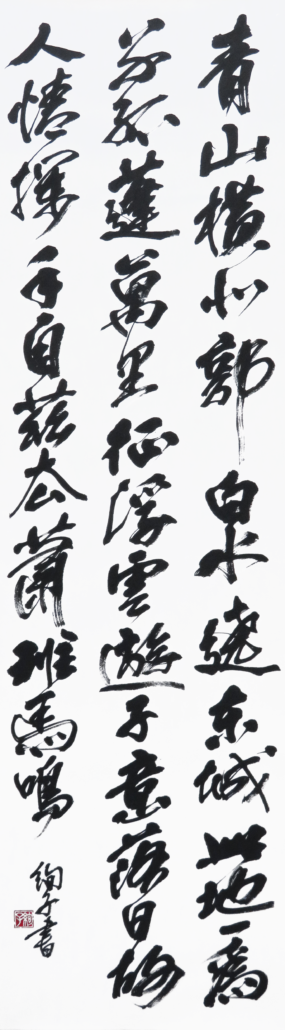 青山横北郭白水遶東城此地一為
別孤蓬萬里征浮雲遊子意落日故
人情揮手自茲去蕭班馬鳴
絢子書